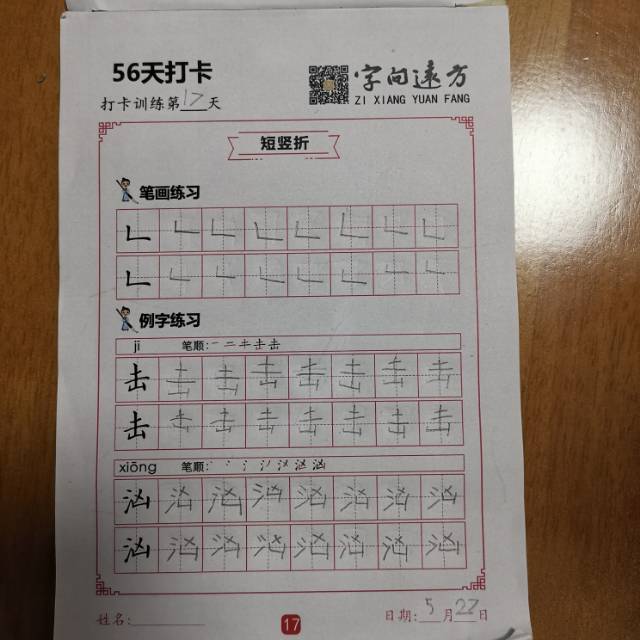 56天打卡
字向遠方
打卡训练第17天
ZI XIANG YUAN FANG
短竖折
笔画练习
𠃊 𠃊 𠃊 𠃊 𠃊 𠃊 𠃊 𠃊
𠃊 𠃊 𠃊 𠃊 𠃊 𠃊 𠃊 𠃊
例字练习
jī 笔顺:一 二 キ 击 击
击 击 击 击 击 击 击 击
击 击 击 击 击 击 击 击
xiōng 笔顺:
汹 汹 汹 汹 汹 汹 汹 汹
汹 汹 汹 汹 汹 汹 汹 汹
姓名: 17 日期:5月22日